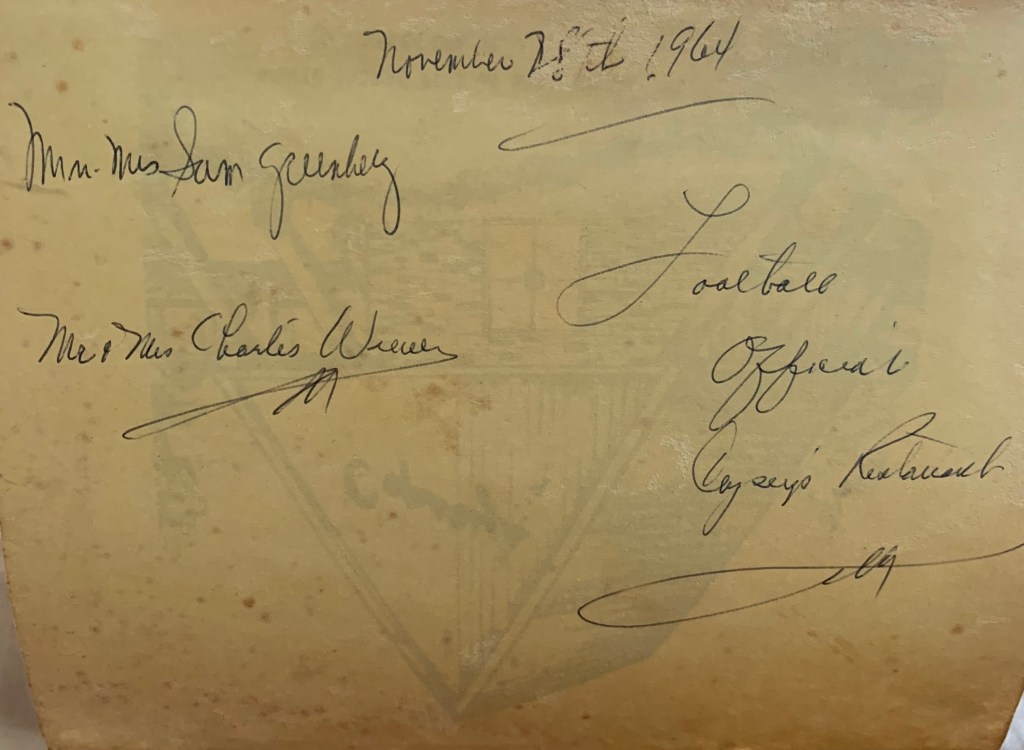 November 28th 1964
Mr. Mrs Sam Greenberg
Mr & Mrs Charles
Football
Official
Restaurant